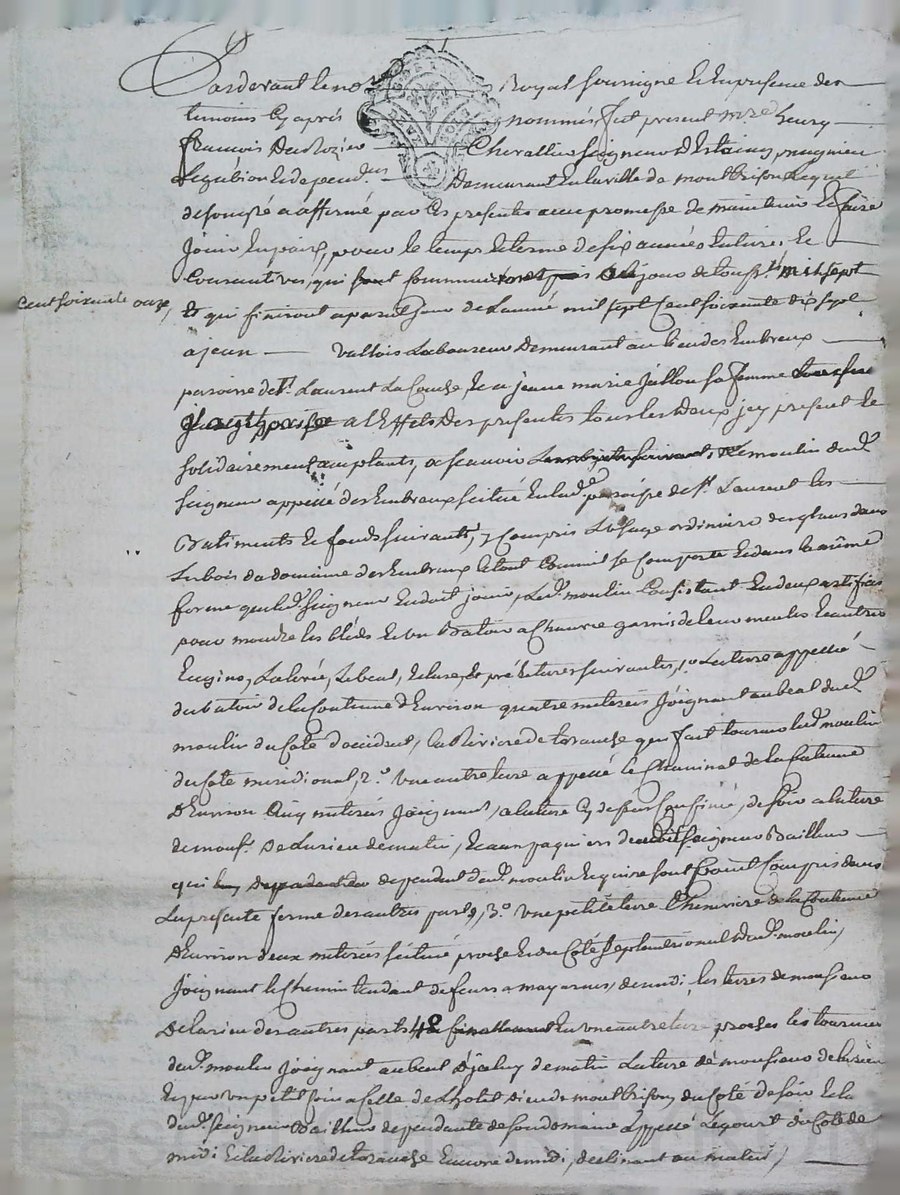 Pardevant le no Royal soussigné et en presence des
temoins cy aprés nommés fut present mre henry
francois Durozier Chevallier Seigneur D'Estaing, magnieu
et dependces Demeurant en la ville de montbrison Lequel
de son gré a affermé par ces presentes avec promesse de maintenir et faire
Jouir en paix, pour le temps et terme de six années entieres et
Consecutives, qui commenceront jour de toussts mil sept
cent soixante onze,
et qui finiront a pareil Jour de L'année mil sept Cent soixante dix sept
a jean Vallois Laboureur Demeurant au lieu des Embreux
paroisse de St. Laurent La Conche et a jeanne marie Jallon sa femme
a L'Effet Des presentes tous Les deux jcy presents et
solidairement acceptants, a scavoir Le moulin dud.
Seigneur appellé des Embreux scitué en lad. paroisse de St. Laurent les
Batiments et fonds suivants, y Compris L'usage ordinaire des glans dans
Les bois du domaine des Embreux le tout Comme il se Comporte et dans la même
forme que led. Seigneur en doit jouir, Led. moulin Consistant en deux artifices
pour moudre les bleds et un Batoir a Chanvre garnis de leurs meules et autres
Engins, La levée, Le beal, Ecluse, et pré et terres suivantes, 1o. La terre appellée
du batoir de la Contenue D'Environ quatre meterées Joignant au beal dud.
moulin du Coté d'occident, la Riviere de toranche qui fait tourner led. moulin
du Coté meridional, 2.o Une autre terre appellée le Cheminat de la Contenue
D'Environ Cinq meterées Joignant, a la terre Cy dessus Confinée, de soir a la terre
de monsr. De Lurieu de matin, et aux paquiers dudit Seigneur Bailleur
qui dependent dud. moulin et qui ne sont point Compris dans
La presente ferme des autres parts, 3.o Une petite terre Cheneviere de la Contenue
D'Environ deux meterées scituée proche et du Coté Septentrional dud. moulin,
Joignant le Chemin tendant de feurs a magneux, de midi, les terres de monsieur
De Larieu des autres parts 4o Une autre terre proches les tournier
dud. moulin Joignant au beal D'jceluy de matin La terre de monsieur de Lurieu
Et par un petit Coin a Celle de L'hotel dieu de montbrison du Coté de soir Et la
dud. Seigneur Bailleur dependante de son domaine appellé Legouet du Coté de
midi Et la Riviere de toranche Encore de midi, declinant au matin,